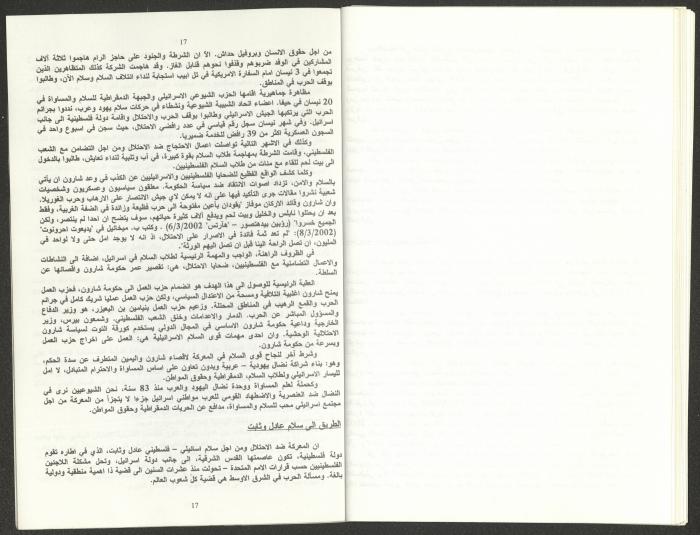 17
من اجل حقوق الانسان وبروفيل حداش. الا ان الشرطة والجنود على حاجز الرام هاجموا ثلاثة آلاف
المشاركين في الوفد ضربوهم وقذفوا نحوهم قنابل الغاز. وقد هاجمت الشركة كذلك المتظاهرين الذين
تجمعوا في 3 نيسان امام السفارة الامريكية في تل ابيب استجابة لنداء ائتلاف السلام وسلام الآن، وطالبوا
بوقف الحرب في المناطق.
مظاهرة جماهيرية اقامها الحزب الشيوعي الاسرائيلي والجبهة الدمقراطية للسلام والمساواة في
20 نيسان في حيفا. اعضاء اتحاد الشبيبة الشيوعية ونشطاء في حركات سلام يهود وعرب، نددوا بجرائم
الحرب التي يرتكبها الجيش الاسرائيلي وطالبوا بوقف الحرب والاحتلال واقامة دولة فلسطينية الى جانب
اسرائيل. وفي شهر نيسان سجل رقم قياسي في عدد رافضي الاحتلال، حيث سجن في اسبوع واحد في
السجون العسكرية اكثر من 39 رافض للخدمة ضميريا.
وكذلك في الاشهر التالية تواصلت اعمال الاحتجاج ضد الاحتلال ومن اجل التضامن مع الشعب
الفلسطيني. وقامت الشرطة بمهاجمة طلاب السلام بقوة كبيرة، في آب وتلبية لنداء تعايش، طالبوا بالدخول
الى بيت لحم للقاء مع مئات من طلاب السلام الفلسطينيين.
وكلما كشف الواقع الفظيع للضحايا الفلسطينيين والاسرائيليين عن الكذب في وعد شارون ان يأتي
بالسلام والامن، تزداد اصوات الانتقاد ضد سياسة الحكومة. مثقفون سياسيون وعسكريون وشخصيات
شعبية نشروا مقالات جرى التأكيد فيها على انه لا يمكن لأي جيش الانتصار على الارهاب وحرب الغوريلا.
وان شارون وقائد الاركان موفاز "يقودان بأعين مفتوحة الى حرب فظيعة وزائدة في الضفة الغربية، وفقط
بعد ان يحتلوا نابلس والخليل وبيت لحم ويدفع آلاف كثيرة حياتهم، سوف يتضح ان احدا لم ينتصر، ولكن
الجميع خسروا" (رؤبين بيدهتسور – "هآرتس" 6/3/2002) . وكتب ب. ميخائيل في "يديعوت احرونوت"
(8/3/2002): "لم تعد ثمة فائدة في الاصرار على الاحتلال، اذ انه لا يوجد امل حتى ولا لواحد في
المليون، ان تصل الراحة الينا قبل ان تصل اليهم الورثة".
في الظروف الراهنة، الواجب والمهمة الرئيسية لطلاب السلام في اسرائيل، اضافة الى النشاطات
والاعمال التضامنية مع الفلسطينيين، ضحايا الاحتلال، هي: تقصير عمر حكومة شارون واقصائها عن
السلطة.
العقبة الرئيسية للوصول الى هذا الهدف هو انضمام حزب العمل الى حكومة شارون، فحزب العمل
يمنح شارون اغلبية ائتلافية ومسحة من الاعتدال السياسي، ولكن حزب العمل عمليا شريك كامل في جرائم
الحرب والقمع الرهيب في المناطق المحتلة. وزعيم حزب العمل بنيامين بن اليعيزر، هو وزير الدفاع
والمسؤول المباشر عن الحرب. الدمار والاعدامات وخنق الشعب الفلسطيني. وشمعون بيرس، وزير
الخارجية وداعية حكومة شارون الاساسي في المجال الدولي يستخدم كورقة التوت لسياسة شارون
الاحتلالية الوحشية. وان احدى مهمات قوى السلام الاسرائيلية هي: العمل على اخراج حزب العمل
وبسرعة من حكومة شارون.
وشرط آخر لنجاح قوى السلام في المعركة لاقصاء شارون واليمين المتطرف عن سدة الحكم،
وهو: بناء شراكة نضال يهودية – عربية وبدون تعاون على اساس المساواة والاحترام المتبادل، لا امل
لليسار الاسرائيلي ولطلاب السلام، الدمقراطية وحقوق المواطن.
وكحملة لعلم المساواة ووحدة نضال اليهود والعرب منذ 83 سنة، نحن الشيوعيين نرى في
النضال ضد العنصرية والاضطهاد القومي للعرب مواطني اسرائيل جزءا لا يتجزأ من المعركة من اجل
مجتمع اسرائيلي محب للسلام والمساواة، مدافع عن الحريات الدمقراطية وحقوق المواطن.
الطريق الى سلام عادل وثابت
ان المعركة ضد الاحتلال ومن اجل سلام اسرائيلي – فلسطيني عادل وثابت، الذي في اطاره تقوم
دولة فلسطينية، تكون عاصمتها القدس الشرقية، الى جانب دولة اسرائيل، وتحل مشكلة اللاجئين
الفلسطينيين حسب قرارات الامم المتحدة – تحولت منذ عشرات السنين الى قضية ذا اهمية منطقية ودولية
بالغة. ومسألة الحرب في الشرق الاوسط هي قضية كل شعوب العالم.
17